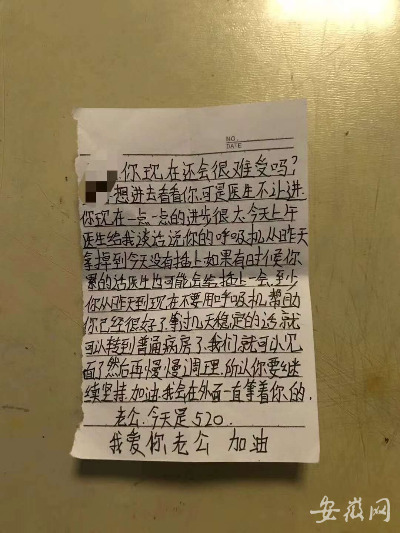 NO.
DATE
你现在还会很难受吗?
想进去看看你可是医生不让进
你现在一点一点的进步很大今天上午
医生给我谈话说你的呼吸机从昨天
拿掉到今天没有插上如果有时候你
累的话医生均可能会给插上一会,至少
你从昨天到现在不要用呼吸机帮助
你已经很好了,等过几天稳定的话就
可以转到普通病房了,我们就可以见
面了然后再慢慢调理.所以你要继
续坚持.加油.我会在外面一直等着你的.
老公.今天是520.
我爱你老公 加油
安徽网